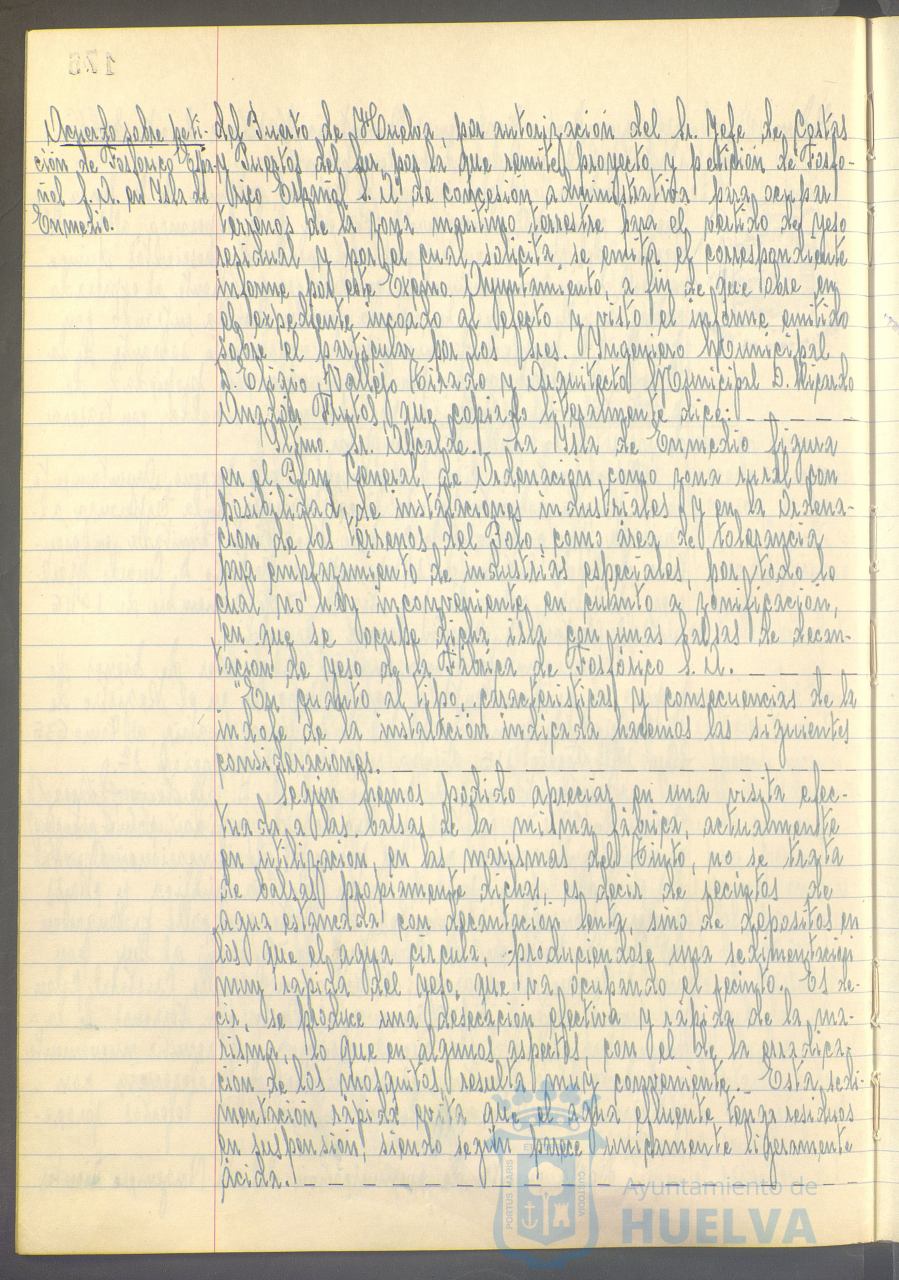 Acuerdo sobre peti-
ción de Fosfórico Espa-
ñol S. A. en Isla de
Enmedio.
del Puerto de Huelva, por autorización del Sr. Jefe de Costas
y Puertos del Sur por la que remite proyecto y petición de Fosfó-
rico Español S. A. de concesión administrativa para ocupar
terrenos de la zona marítimo terrestre para el vertido de yeso
residual y por el cual solicita se emita el correspondiente
informe por este Excmo. Ayuntamiento, a fin de que obre en
el expediente incoado al efecto y visto el informe emitido
sobre el particular por los Sres. Ingeniero Municipal
D. Eligio Vallejo Tirado y Arquitecto Municipal D. Ricardo
Anadón Frutos que copiado literalmente dice:
"Iltmo. Sr. Alcalde. La Isla de Enmedio figura
en el Plan General de Ordenación como zona rural con
posibilidad de instalaciones industriales y en la Ordena-
ción de los terrenos del Polo, como área de tolerancia
para emplazamiento de industrias especiales, por todo lo
cual no hay inconveniente en cuanto a zonificación,
en que se ocupe dicha isla con unas balsas de decan-
tación de yeso de la Fábrica de Fosfórico S. A.
En cuanto al tipo, características y consecuencias de la
índole de la instalación indicada hacemos las siguientes
consideraciones.
Según hemos podido apreciar en una visita efec-
tuada a las balsas de la misma fábrica, actualmente
en utilización, en las marismas del Tinto, no se trata
de balsas propiamente dichas, es decir de recintos de
agua estancada con decantación lenta, sino de depósitos en
los que el agua circula, produciéndose una sedimentación
muy rápida del yeso, que va ocupando el recinto. Es de-
cir, se produce una desecación efectiva y rápida de la ma-
risma, lo que en algunos aspectos, con el de la erradica-
ción de los mosquitos, resulta muy conveniente. Esta sedi-
mentación rápida evita que el agua efluente tenga residuos
en suspensión, siendo según parece únicamente ligeramente
ácida.
PORTUS MARIS
CUSTODIA
Ayuntamiento de
HUELVA